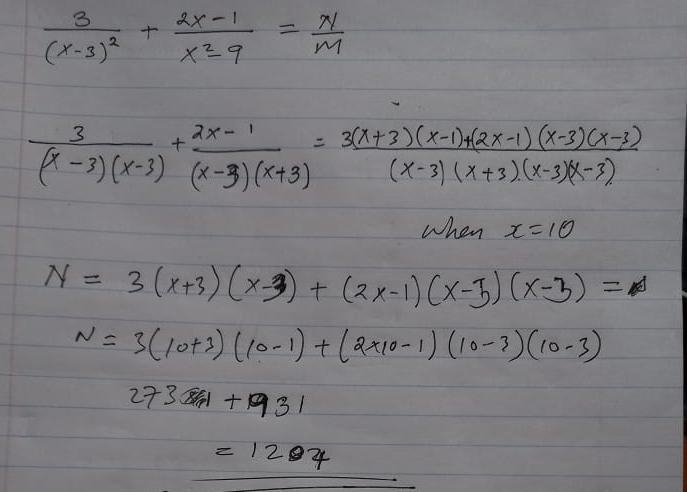 3/(x-3)² + (2x-1)/(x²-9) = N/M
3/((x-3)(x-3)) + (2x-1)/((x-3)(x+3)) = (3(x+3)(x-1)+(2x-1)(x-3)(x-3))/((x-3)(x+3).(x-3)(x-3))
when x=10
N = 3(x+3)(x-3) + (2x-1)(x-3)(x-3) =
N = 3(10+3)(10-1) + (2×10-1)(10-3)(10-3)
273 + 931
= 1204